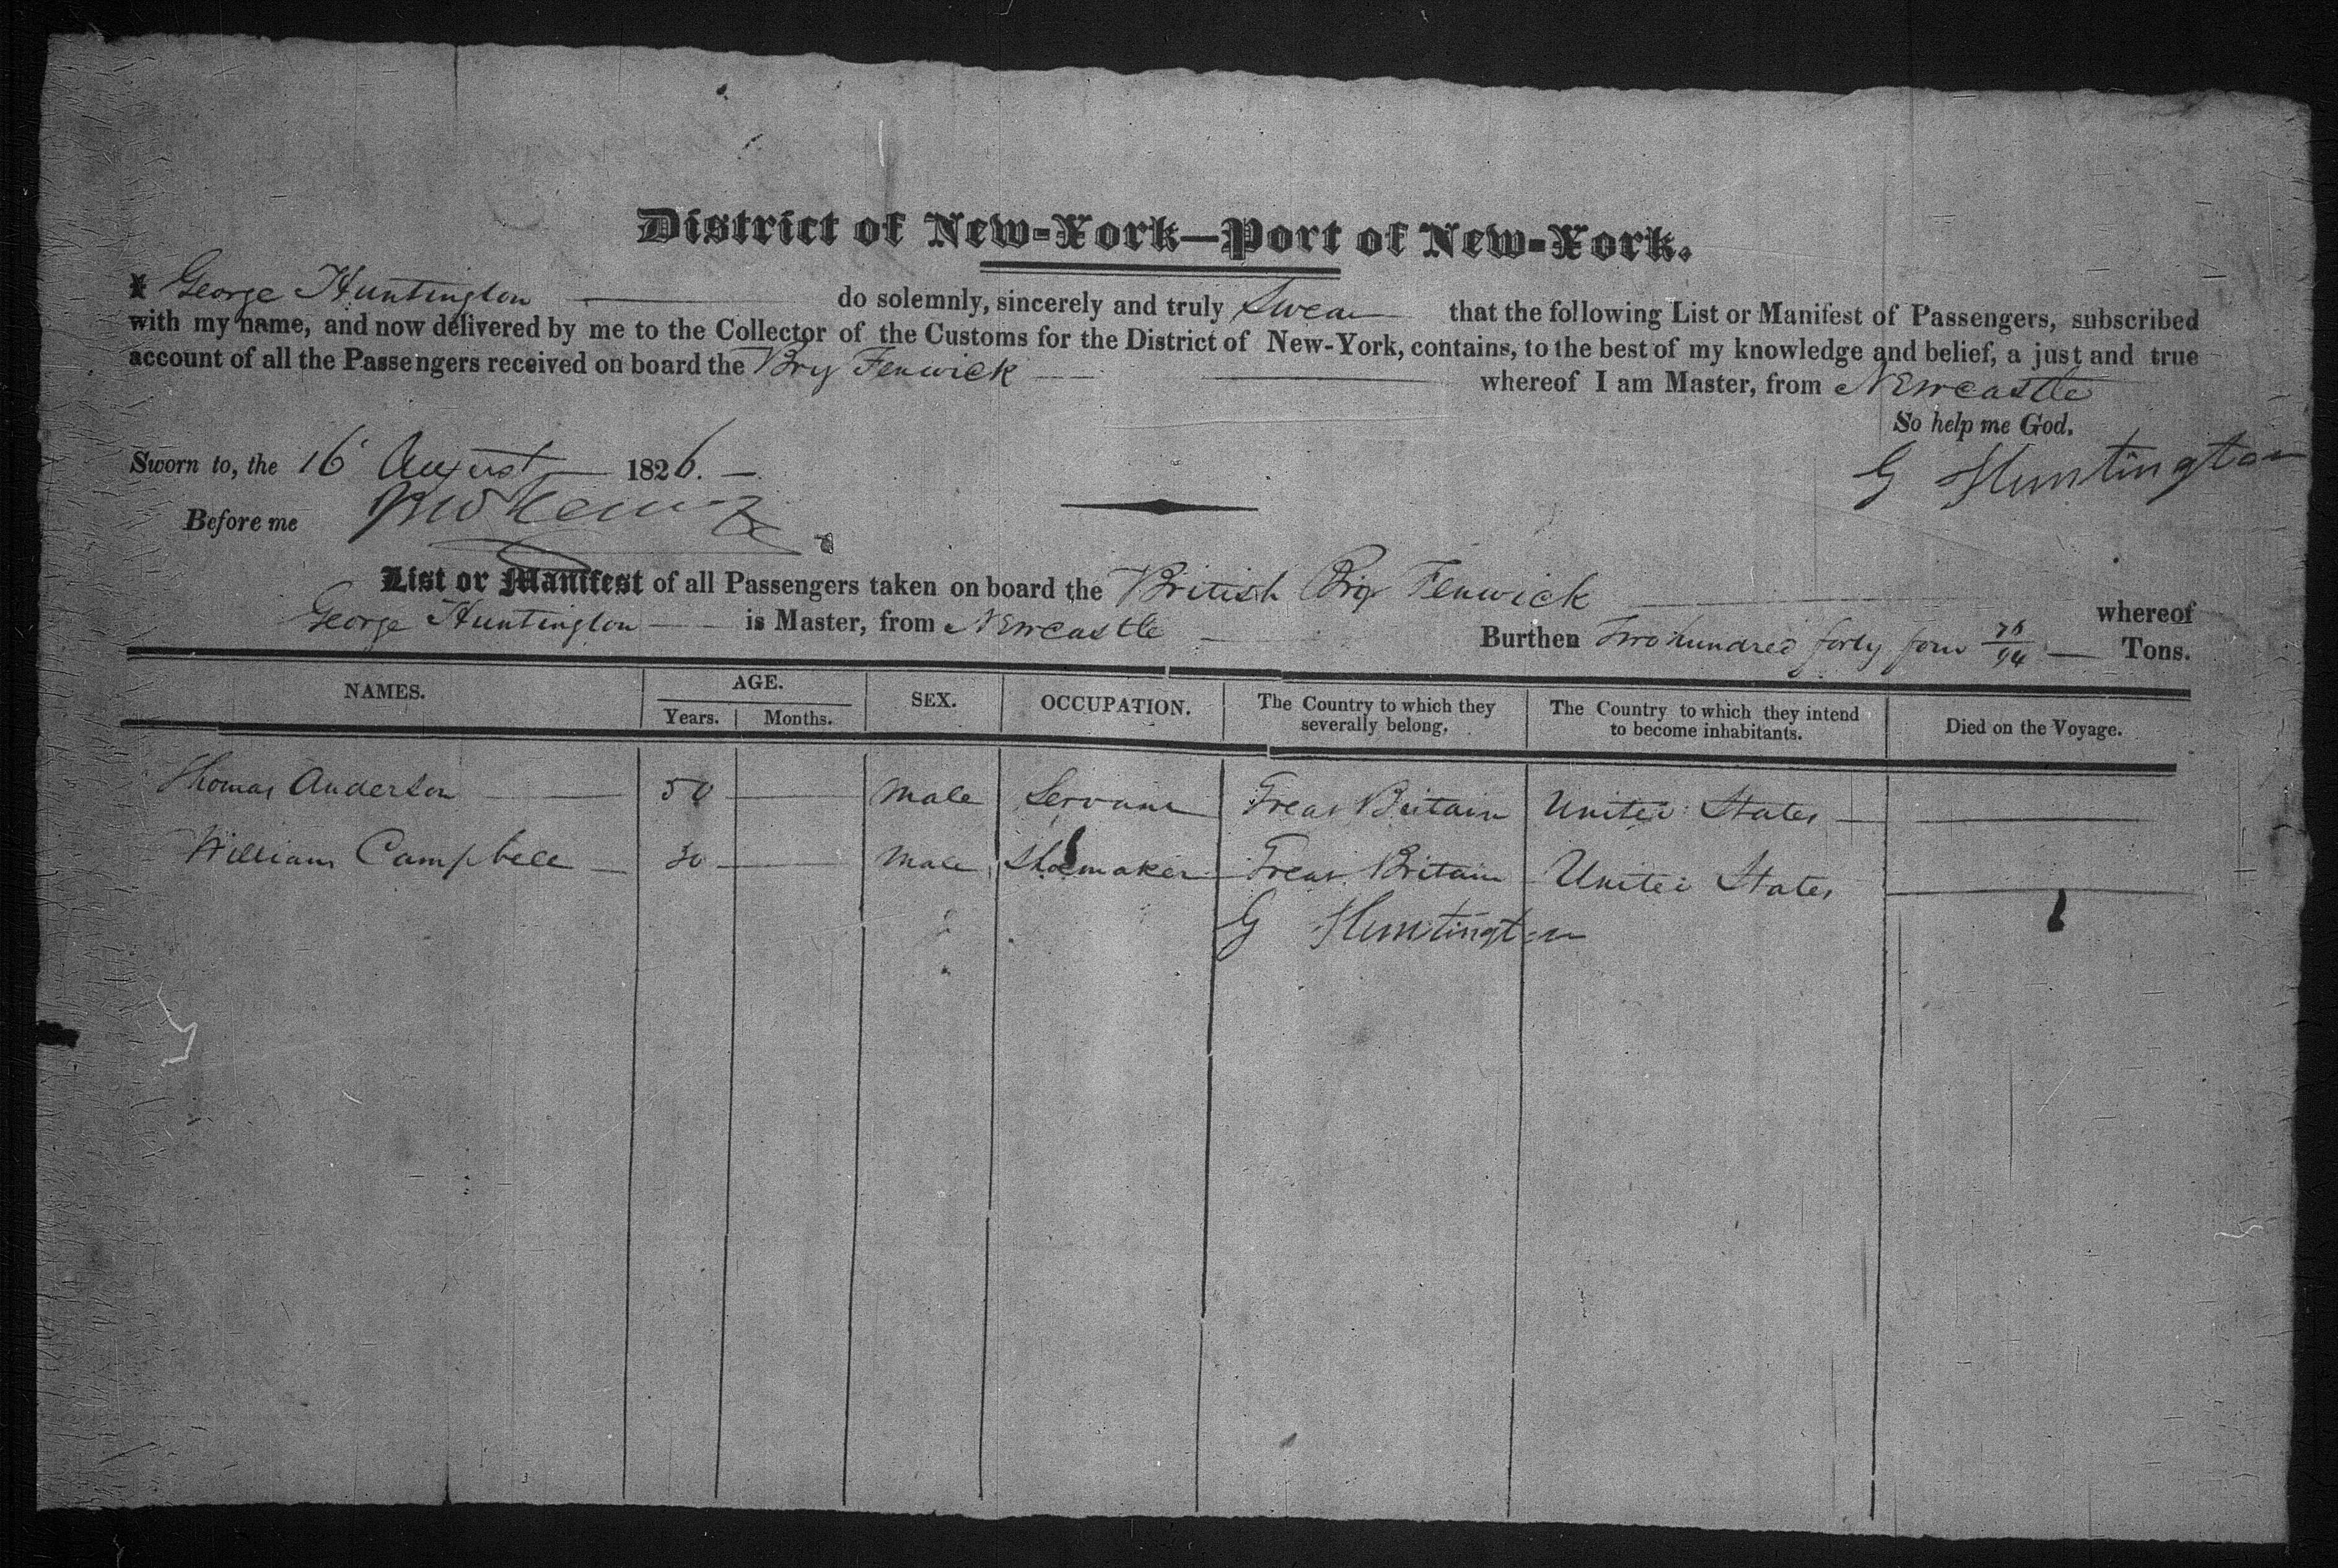 District of New-York—Port of New-York.
I George Huntington do solemnly, sincerely and truly Swear that the following List or Manifest of Passengers, subscribed
with my name, and now delivered by me to the Collector of the Customs for the District of New-York, contains, to the best of my knowledge and belief, a just and true
account of all the Passengers received on board the Brig Fenwick whereof I am Master, from Newcastle
So help me God.
Sworn to, the 16 August 1826.
G Huntington
Before me
List or Manifest of all Passengers taken on board the British Brig Fenwick whereof
George Huntington is Master, from Newcastle Burthen Two hundred forty four /94 Tons.
NAMES. AGE. SEX. OCCUPATION. The Country to which they severally belong. The Country to which they intend to become inhabitants. Died on the Voyage.
Years. Months.
Thomas Anderson 50 Male Servant Great Britain United States
William Campbell 30 Male Shoemaker Great Britain United States
G Huntington